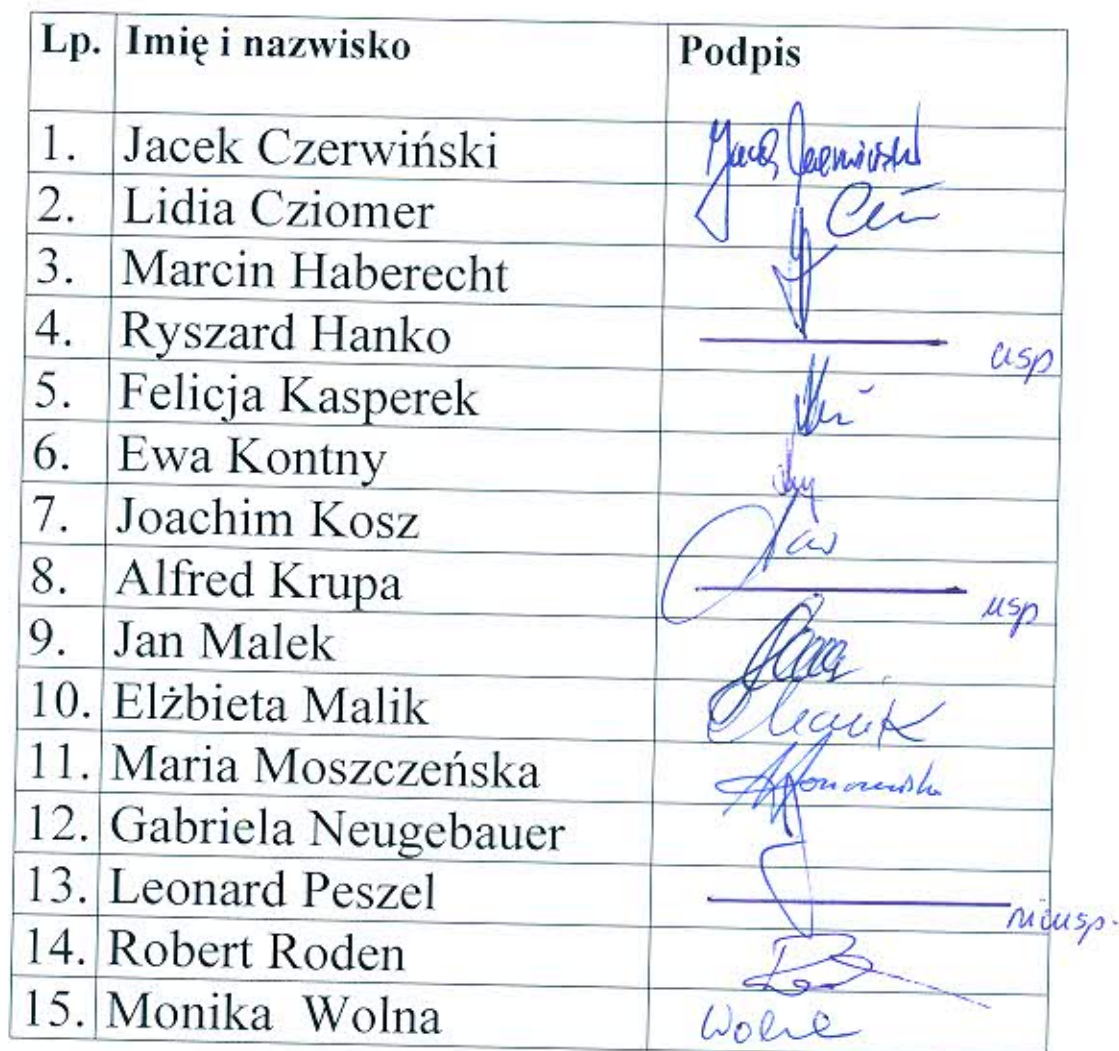 Lp. Imię i nazwisko Podpis
1. Jacek Czerwiński
2. Lidia Cziomer
3. Marcin Haberecht
4. Ryszard Hanko usp
5. Felicja Kasperek
6. Ewa Kontny
7. Joachim Kosz
8. Alfred Krupa usp
9. Jan Malek
10. Elżbieta Malik
11. Maria Moszczeńska
12. Gabriela Neugebauer
13. Leonard Peszel nieusp.
14. Robert Roden
15. Monika Wolna